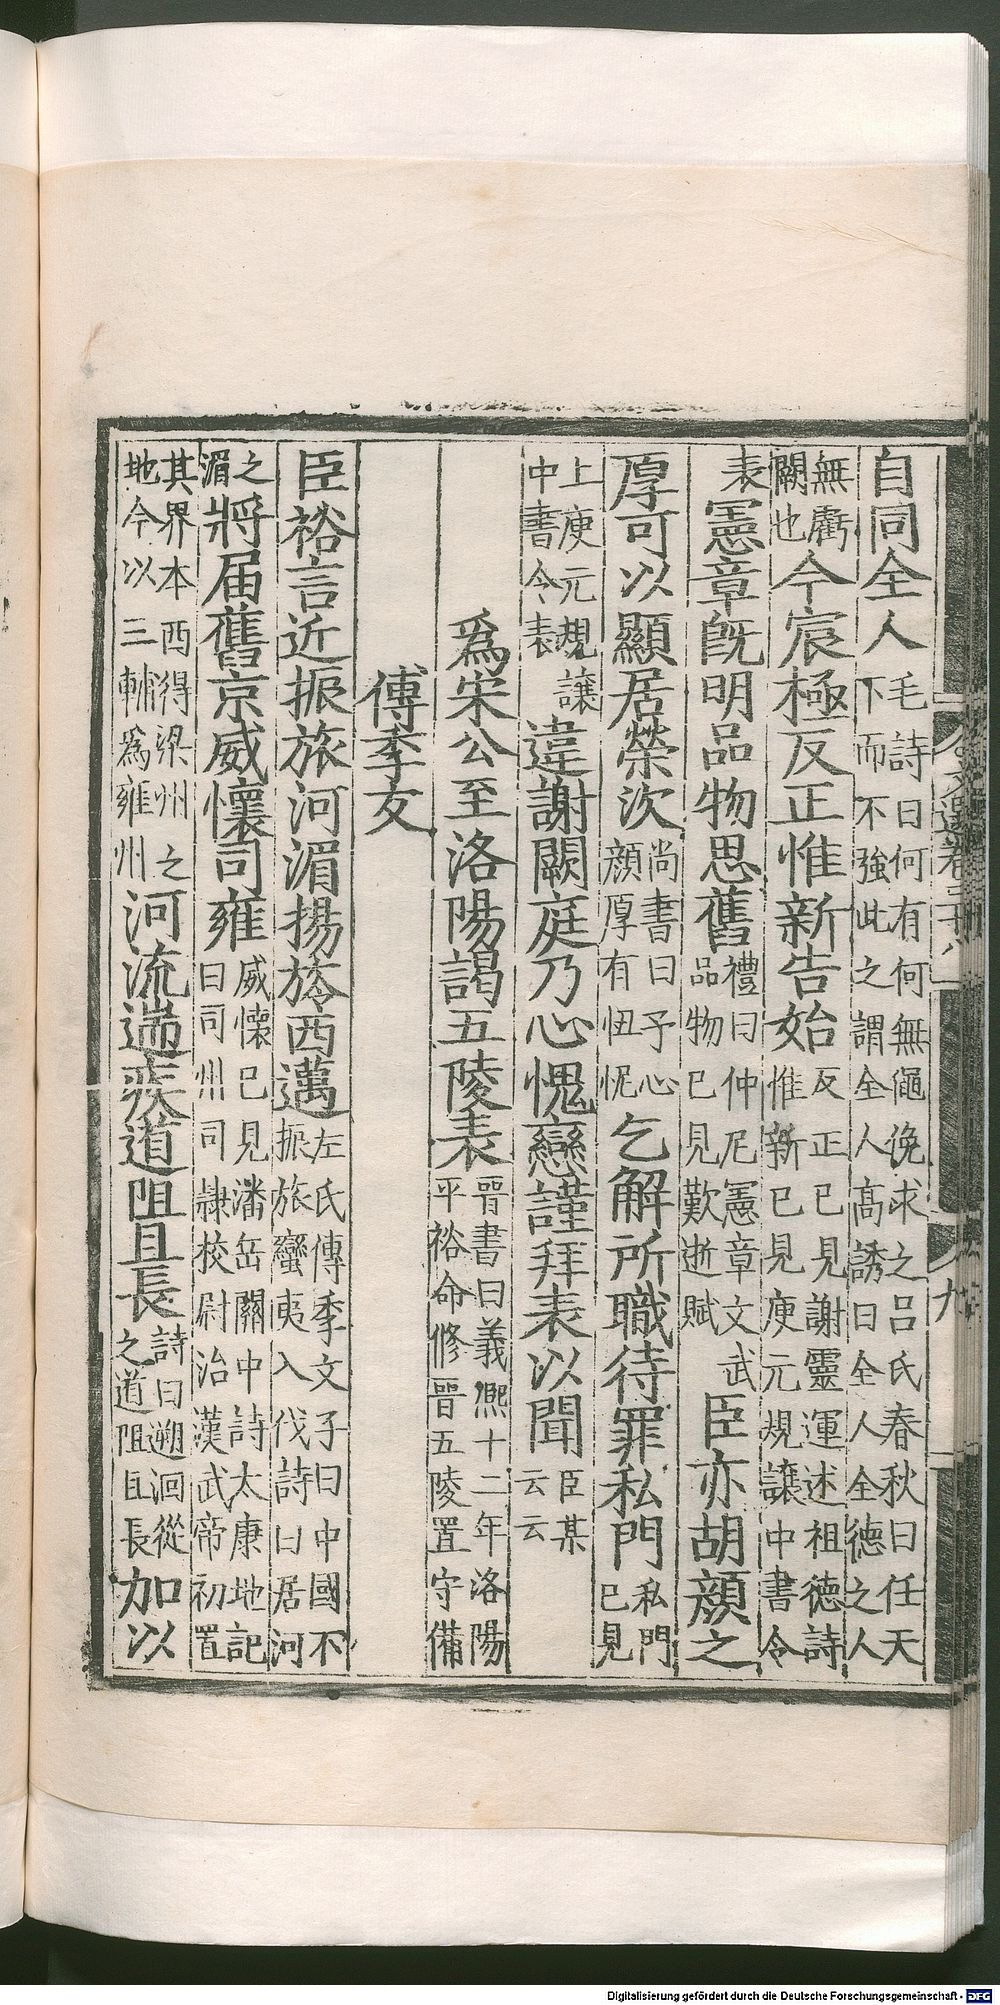 文選卷三十八
九
自同全人毛詩曰何有何無僶俛求之呂氏春秋曰任天下而不強此之謂全人高誘曰全人全德之人
無虧闕也今宸極反正惟新告始反正已見謝靈運述祖德詩惟新已見庾元規讓中書令
表憲章旣明品物思舊禮曰仲尼憲章文武品物已見歎逝賦臣亦胡顏之
厚可以顯居榮次尚書曰予心顏厚有忸怩乞解所職待罪私門私門已見
上庾元規讓中書令表違謝闕庭乃心愧戀謹拜表以聞臣某云云
爲宋公至洛陽謁五陵表晉書曰義熙十二年洛陽平裕命修晉五陵置守備
傅季友
臣裕言近振旅河湄揚旍西邁左氏傳季文子曰中國不振旅蠻夷入伐詩曰居河
之湄將届舊京威懷司雍威懷已見潘岳關中詩太康地記曰司州司隸校尉治漢武帝初置
其界本西得梁州之地今以三輔爲雍州河流遄疾道阻且長詩曰遡洄從之道阻且長加以
Digitalisierung gefördert durch die Deutsche Forschungsgemeinschaft - DFG